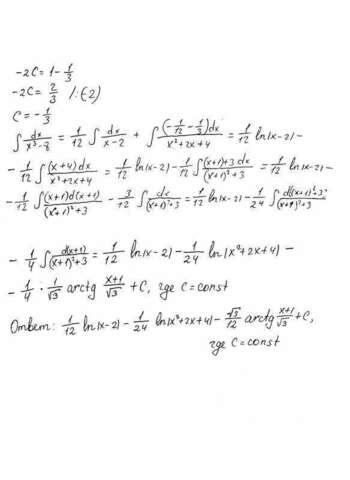 -2C = 1 - 1/3
-2C = 2/3 /:(-2)
C = -1/3
∫ dx/(x³-8) = 1/12 ∫ dx/(x-2) + ∫ (-1/12 - 1/3)dx/(x²+2x+4) = 1/12 ln|x-2| -
- 1/12 ∫ (x+4)dx/(x²+2x+4) = 1/12 ln|x-2| - 1/12 ∫ (x+1)+3 dx/((x+1)²+3) = 1/12 ln|x-2| -
- 1/12 ∫ (x+1)d(x+1)/((x+1)²+3) - 3/12 ∫ dx/((x+1)²+3) = 1/12 ln|x-2| - 1/24 ∫ d((x+1)²+3)/((x+1)²+3) -
- 1/4 ∫ d(x+1)/((x+1)²+3) = 1/12 ln|x-2| - 1/24 ln|x²+2x+4| -
- 1/4 · 1/√3 arctg (x+1)/√3 + C, где C = const
Ответ: 1/12 ln|x-2| - 1/24 ln|x²+2x+4| - √3/12 arctg (x+1)/√3 + C,
где C = const